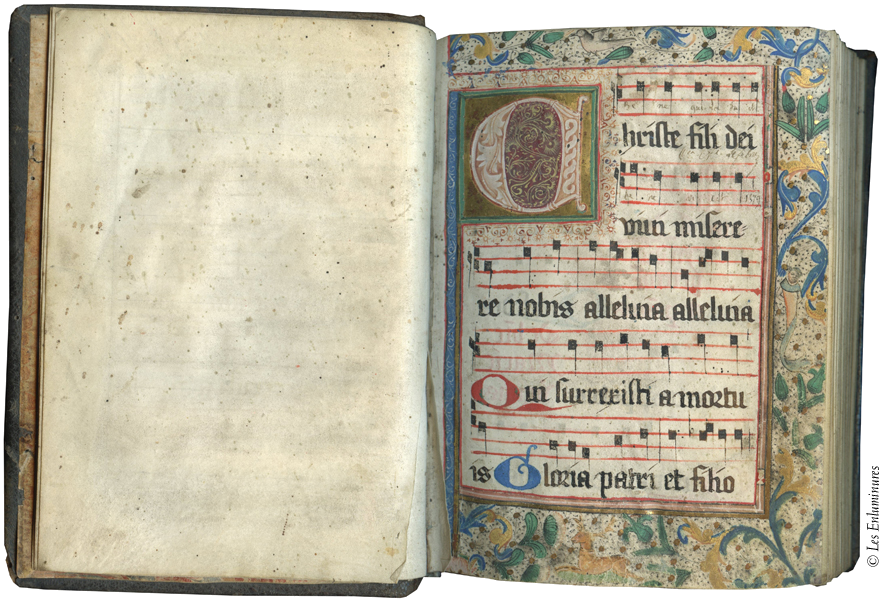 Christe fili dei
viui misere-
re nobis alleluia alleluia
Qui surrexisti a mortu
is Gloria patri et filio
© Les Enluminures